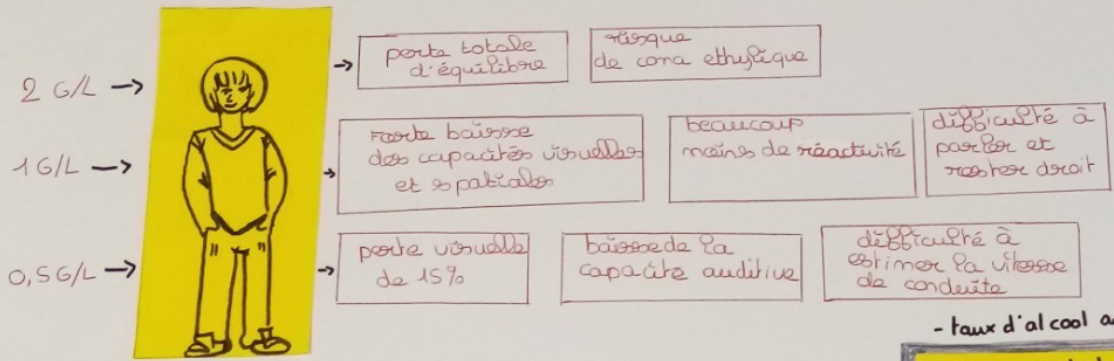 2 G/L →
→ perte totale
d'équilibre
risque
de coma ethylique
1 G/L →
→ Forte baisse
des capacités visuelles
et spatiales
beaucoup
moins de réactivité
difficulté à
parler et
rester droit
0,5 G/L →
→ perte visuelle
de 15%
baisse de la
capacité auditive
difficulté à
estimer la vitesse
de conduite
- taux d'alcool